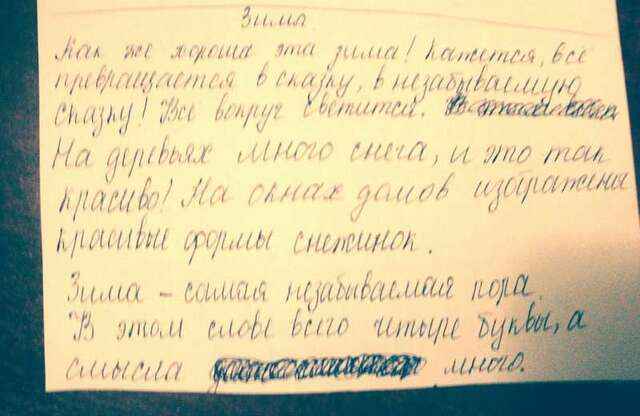 Зима
Как же хороша эта зима! Кажется, всё
превращается в сказку, в незабываемую
сказку! Всё вокруг светится.
На деревьях много снега, и это так
красиво! На окнах домов изображены
красивые формы снежинок.
Зима – самая незабываемая пора.
В этом слове всего четыре буквы, а
смысла много.